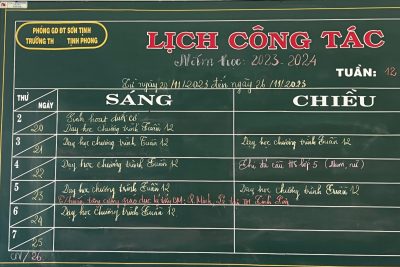 PHÒNG GD ĐT SƠN TỊNH
TRƯỜNG TH TỊNH PHONG
LỊCH CÔNG TÁC
Năm học: 2023-2024
TUẦN: 12
Từ ngày 20/11/2023 đến ngày 26/11/2023
THỨ NGÀY SÁNG CHIỀU
2 Sinh hoạt dưới cờ
20 Dạy học chương trình Tuần 12
3 Dạy học chương trình Tuần 12 Dạy học chương trình Tuần 12
21
4 Dạy học chương trình Tuần 12 Thi đá cầu HS lớp 5 (Nam, nữ)
22
5 Dạy học chương trình Tuần 12 Dạy học chương trình Tuần 12
23
6 Dạy học chương trình Tuần 12
24
7
25
CN/26